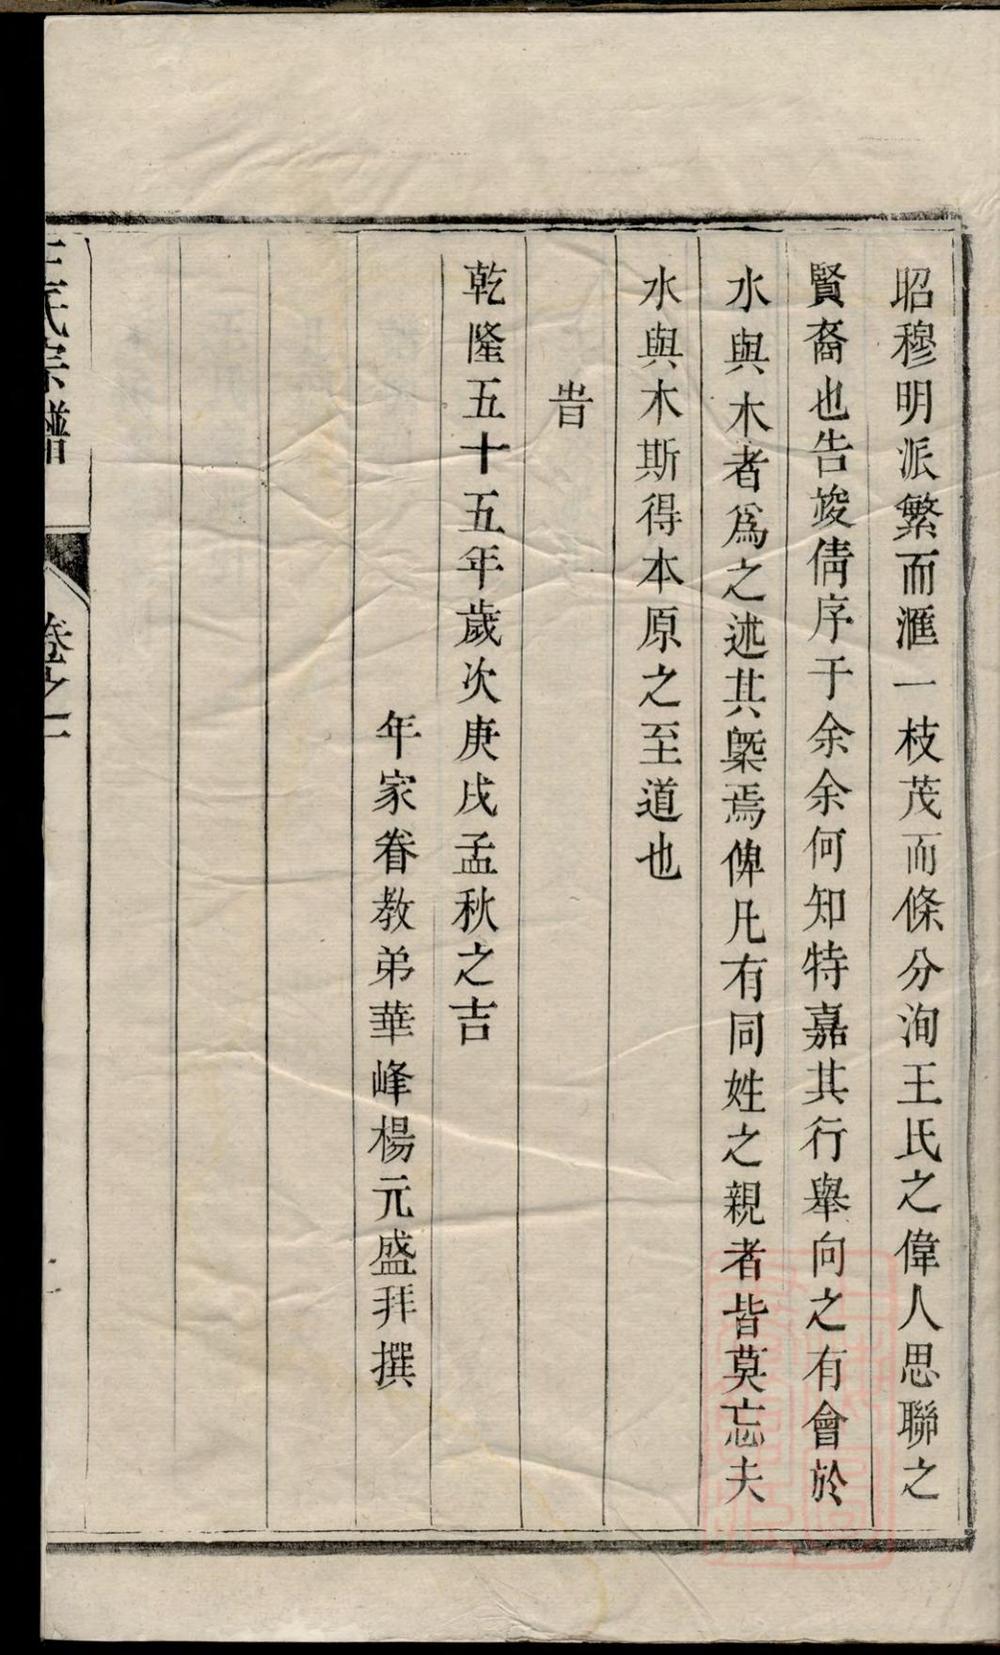 昭穆明派繁而滙一枝茂而條分洵王氏之偉人思聯之
賢裔也告竣倩序于余余何知特嘉其行舉向之有會於
水與木者爲之述其槩焉俾凡有同姓之親者皆莫忘夫
水與木斯得本原之至道也
旹
乾隆五十五年歲次庚戌孟秋之吉
年家眷教弟華峰楊元盛拜撰
王氏宗譜
卷之一